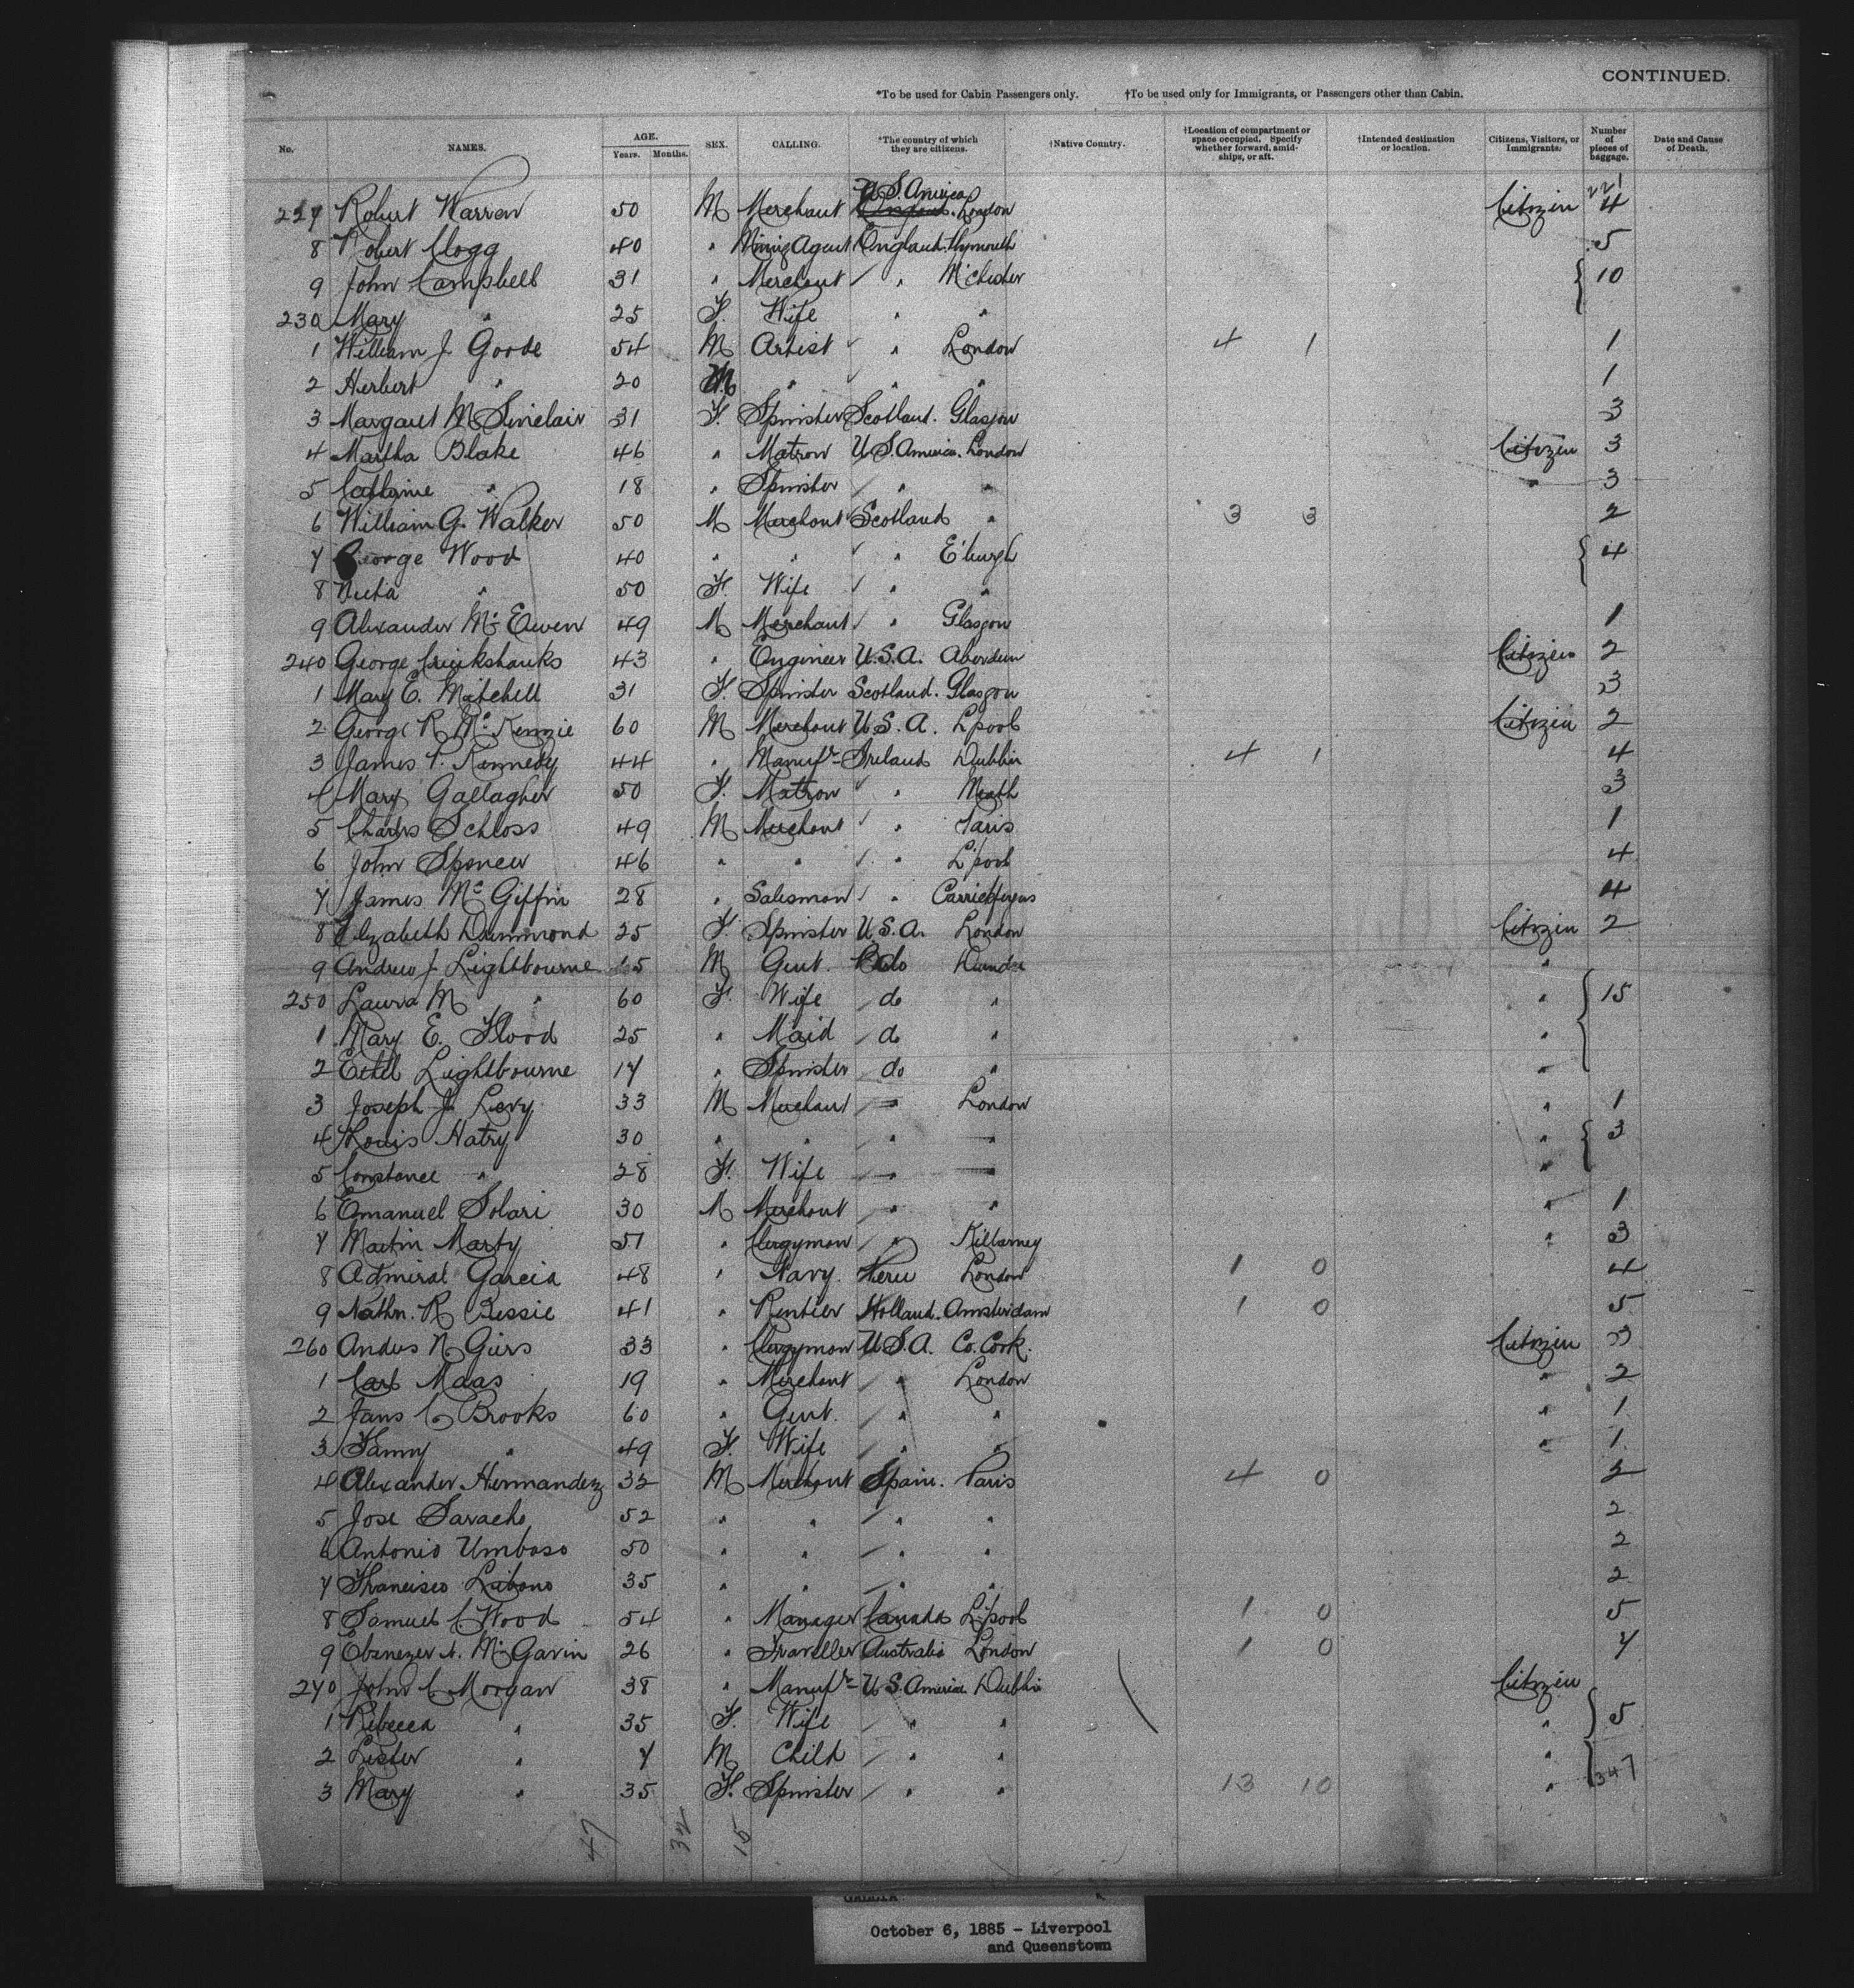 CONTINUED.
*To be used for Cabin Passengers only. †To be used only for Immigrants, or Passengers other than Cabin.
No. NAMES. AGE. Years. Months. SEX. CALLING. *The country of which they are citizens. †Native Country. †Location of compartment or space occupied. Specify whether forward, amidships, or aft. †Intended destination or location. Citizens, Visitors, or Immigrants. Number of pieces of baggage. Date and Cause of Death.
221
227 Robert Warren 50 M Merchant U S America London Citizen 4
8 Robert Clogg 40 " Mining Agent England. Plymouth 5
9 John Campbell 31 " Merchant " M'chester 10
230 Mary " 25 F. Wife " "
1 William J. Goode 54 M Artist " London 4 1 1
2 Herbert " 20 M " " " 1
3 Margaret M Sinclair 31 F. Spinster Scotland. Glasgow 3
4 Martha Blake 46 " Matron U.S. America. London Citizen 3
5 " 18 " Spinster " " " 3
6 William G. Walker 50 M Merchant Scotland " 3 3 2
7 George Wood 40 " " " E'burgh 4
8 " 50 F. Wife " "
9 Alexander McEwen 49 M Merchant " Glasgow 1
240 George Cruikshanks 43 " Engineer U.S.A. Aberdeen Citizen 2
1 Mary E. Mitchell 31 F. Spinster Scotland. Glasgow 3
2 George R. McKenzie 60 M Merchant U.S.A. L'pool Citizen 2
3 James P. Kennedy 44 " Manufr Ireland Dublin 4 1 4
4 Mary Gallagher 50 F. Matron " Meath 3
5 Charles Schloss 49 M Merchant " Paris 1
6 John Spencer 46 " " " L'pool 4
7 James McGiffin 28 " Salesman " Carrickfergus 4
8 Elizabeth Dummond 25 F Spinster U.S.A. London Citizen 2
9 Andrew J. Lightbourne 65 M Gent. do "
250 Laura M " 60 F. Wife do " " 15
1 Mary E. Flood 25 " Maid do " "
2 Ethel Lightbourne 17 " Spinster do " "
3 Joseph J. Levy 33 M Merchant " London " 1
4 Louis Hatry 30 " " " " " 3
5 Constance " 28 F. Wife " " "
6 Emanuel Solari 30 M Merchant " " " 1
7 Martin Marty 51 " Clergyman " Killarney " 3
8 Admiral Garcia 48 " Navy. Peru London 1 0 4
9 Nathn. R 41 " Rentier Holland. Amsterdam 1 0 5
260 33 " Clergyman U.S.A. Co. Cork. Citizen 3
1 Carl Maas 19 " Merchant " London " 2
2 Brooks 60 " Gent. " " " 1
3 Fanny " 49 F. Wife " " " 1
4 Alexander Hermandez 32 M Merchant Spain. Paris 4 0 2
5 Jose Saracho 52 " " " " 2
6 Antonio Umboso 50 " " " " 2
7 Francisco 35 " " " " 2
8 Samuel C. Wood 54 " Manager Canada L'pool 1 0 5
9 Ebenezer A. McGavin 26 " Traveller Australia London 1 0 7
270 John C. Morgan 38 " Manufr U.S. America Dublin Citizen
1 Rebecca " 35 F. Wife " " " 5
2 Lester " 7 M Child " " "
3 Mary " 35 F. Spinster " " 13 10 " 347
47 32 15
October 6, 1885 - Liverpool
and Queenstown